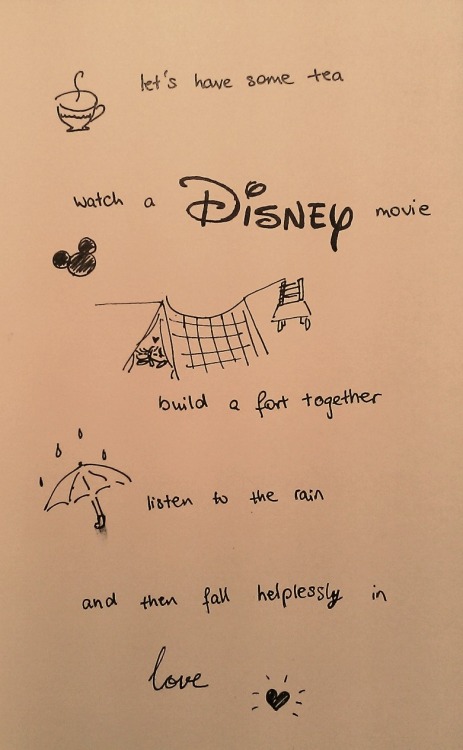 let's have some tea
watch a Disney movie
build a fort together
listen to the rain
and then fall helplessly in
love